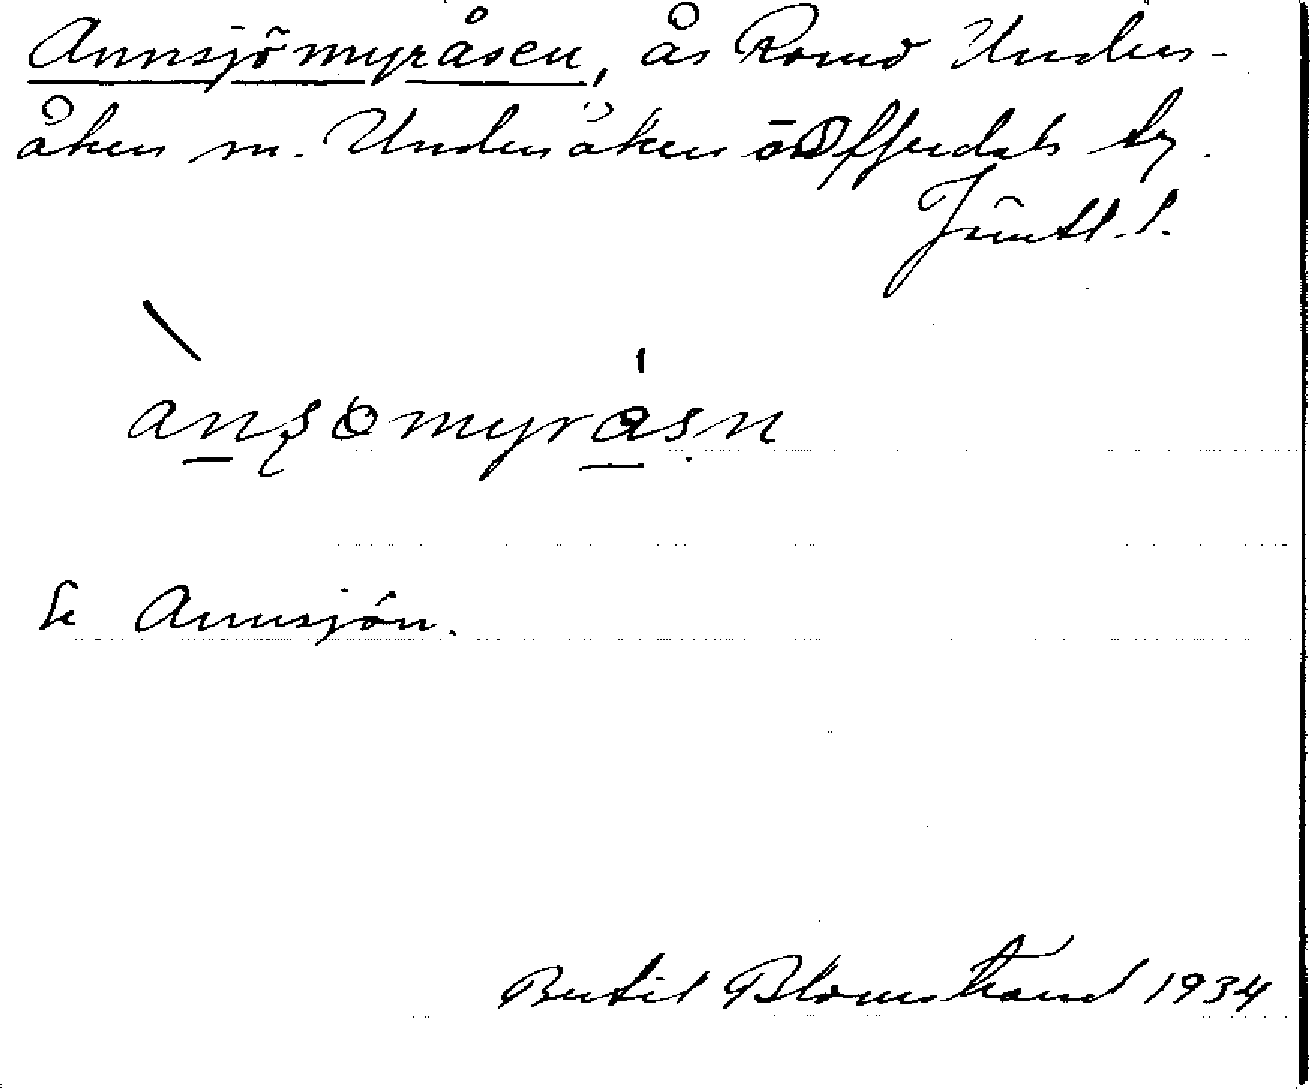 Annsjömyråsen, ås Romo Unders-
åkers sn. Undersåkers o Offerdals tg.
Jämtl. l.
ansomyråsn
Se Annsjön.
Bertil Blomstrand 1934